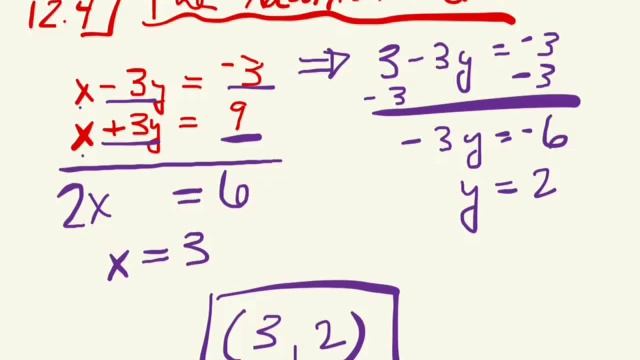 12.4
x - 3y = -3
x + 3y = 9
2x = 6
x = 3
⇒ 3 - 3y = -3
-3 -3
-3y = -6
y = 2
(3, 2)